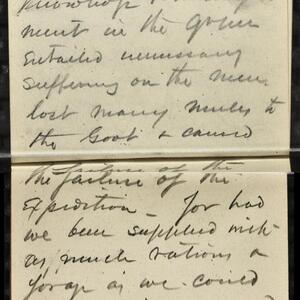 knowledge
ment in the Gover
Entailed necessary
suffering on the men
lost many mules to
the Govt & caused
the failure of the
Expedition – for had
we been supplied with
as much rations &
forage as we could